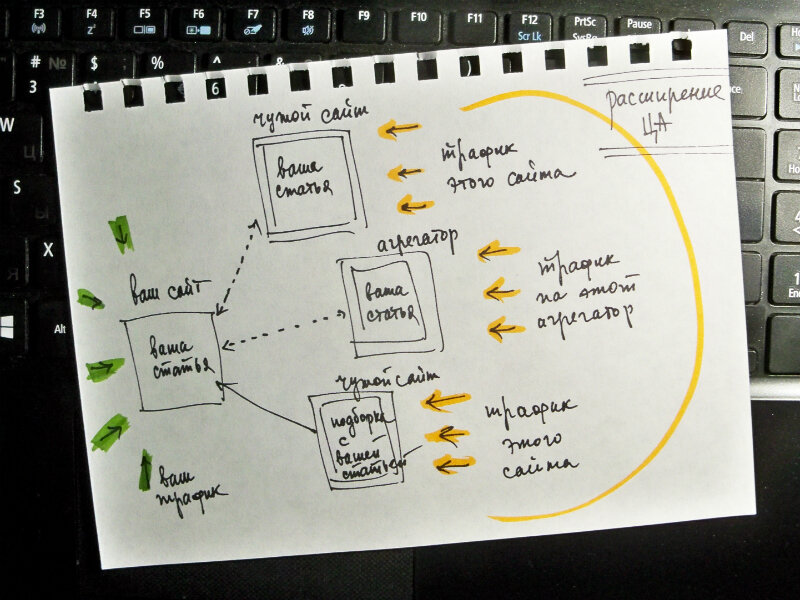 F3
F4
F5
F6
F7
F8
F9
F10
F11
F12
Scr Lk
PrtSc
SysRq
Pause
Del
#
3
№
$
%
^
6
&
)
W
Ц
S
Ы
X
Alt
расширение
ЦА
чужой сайт
ваша
статья
трафик
этого сайта
агрегатор
ваша
статья
трафик
на этот
агрегатор
ваш сайт
ваша
статья
чужой сайт
подборка
с
вашей
статьей
трафик
этого
сайта
ваш
трафик